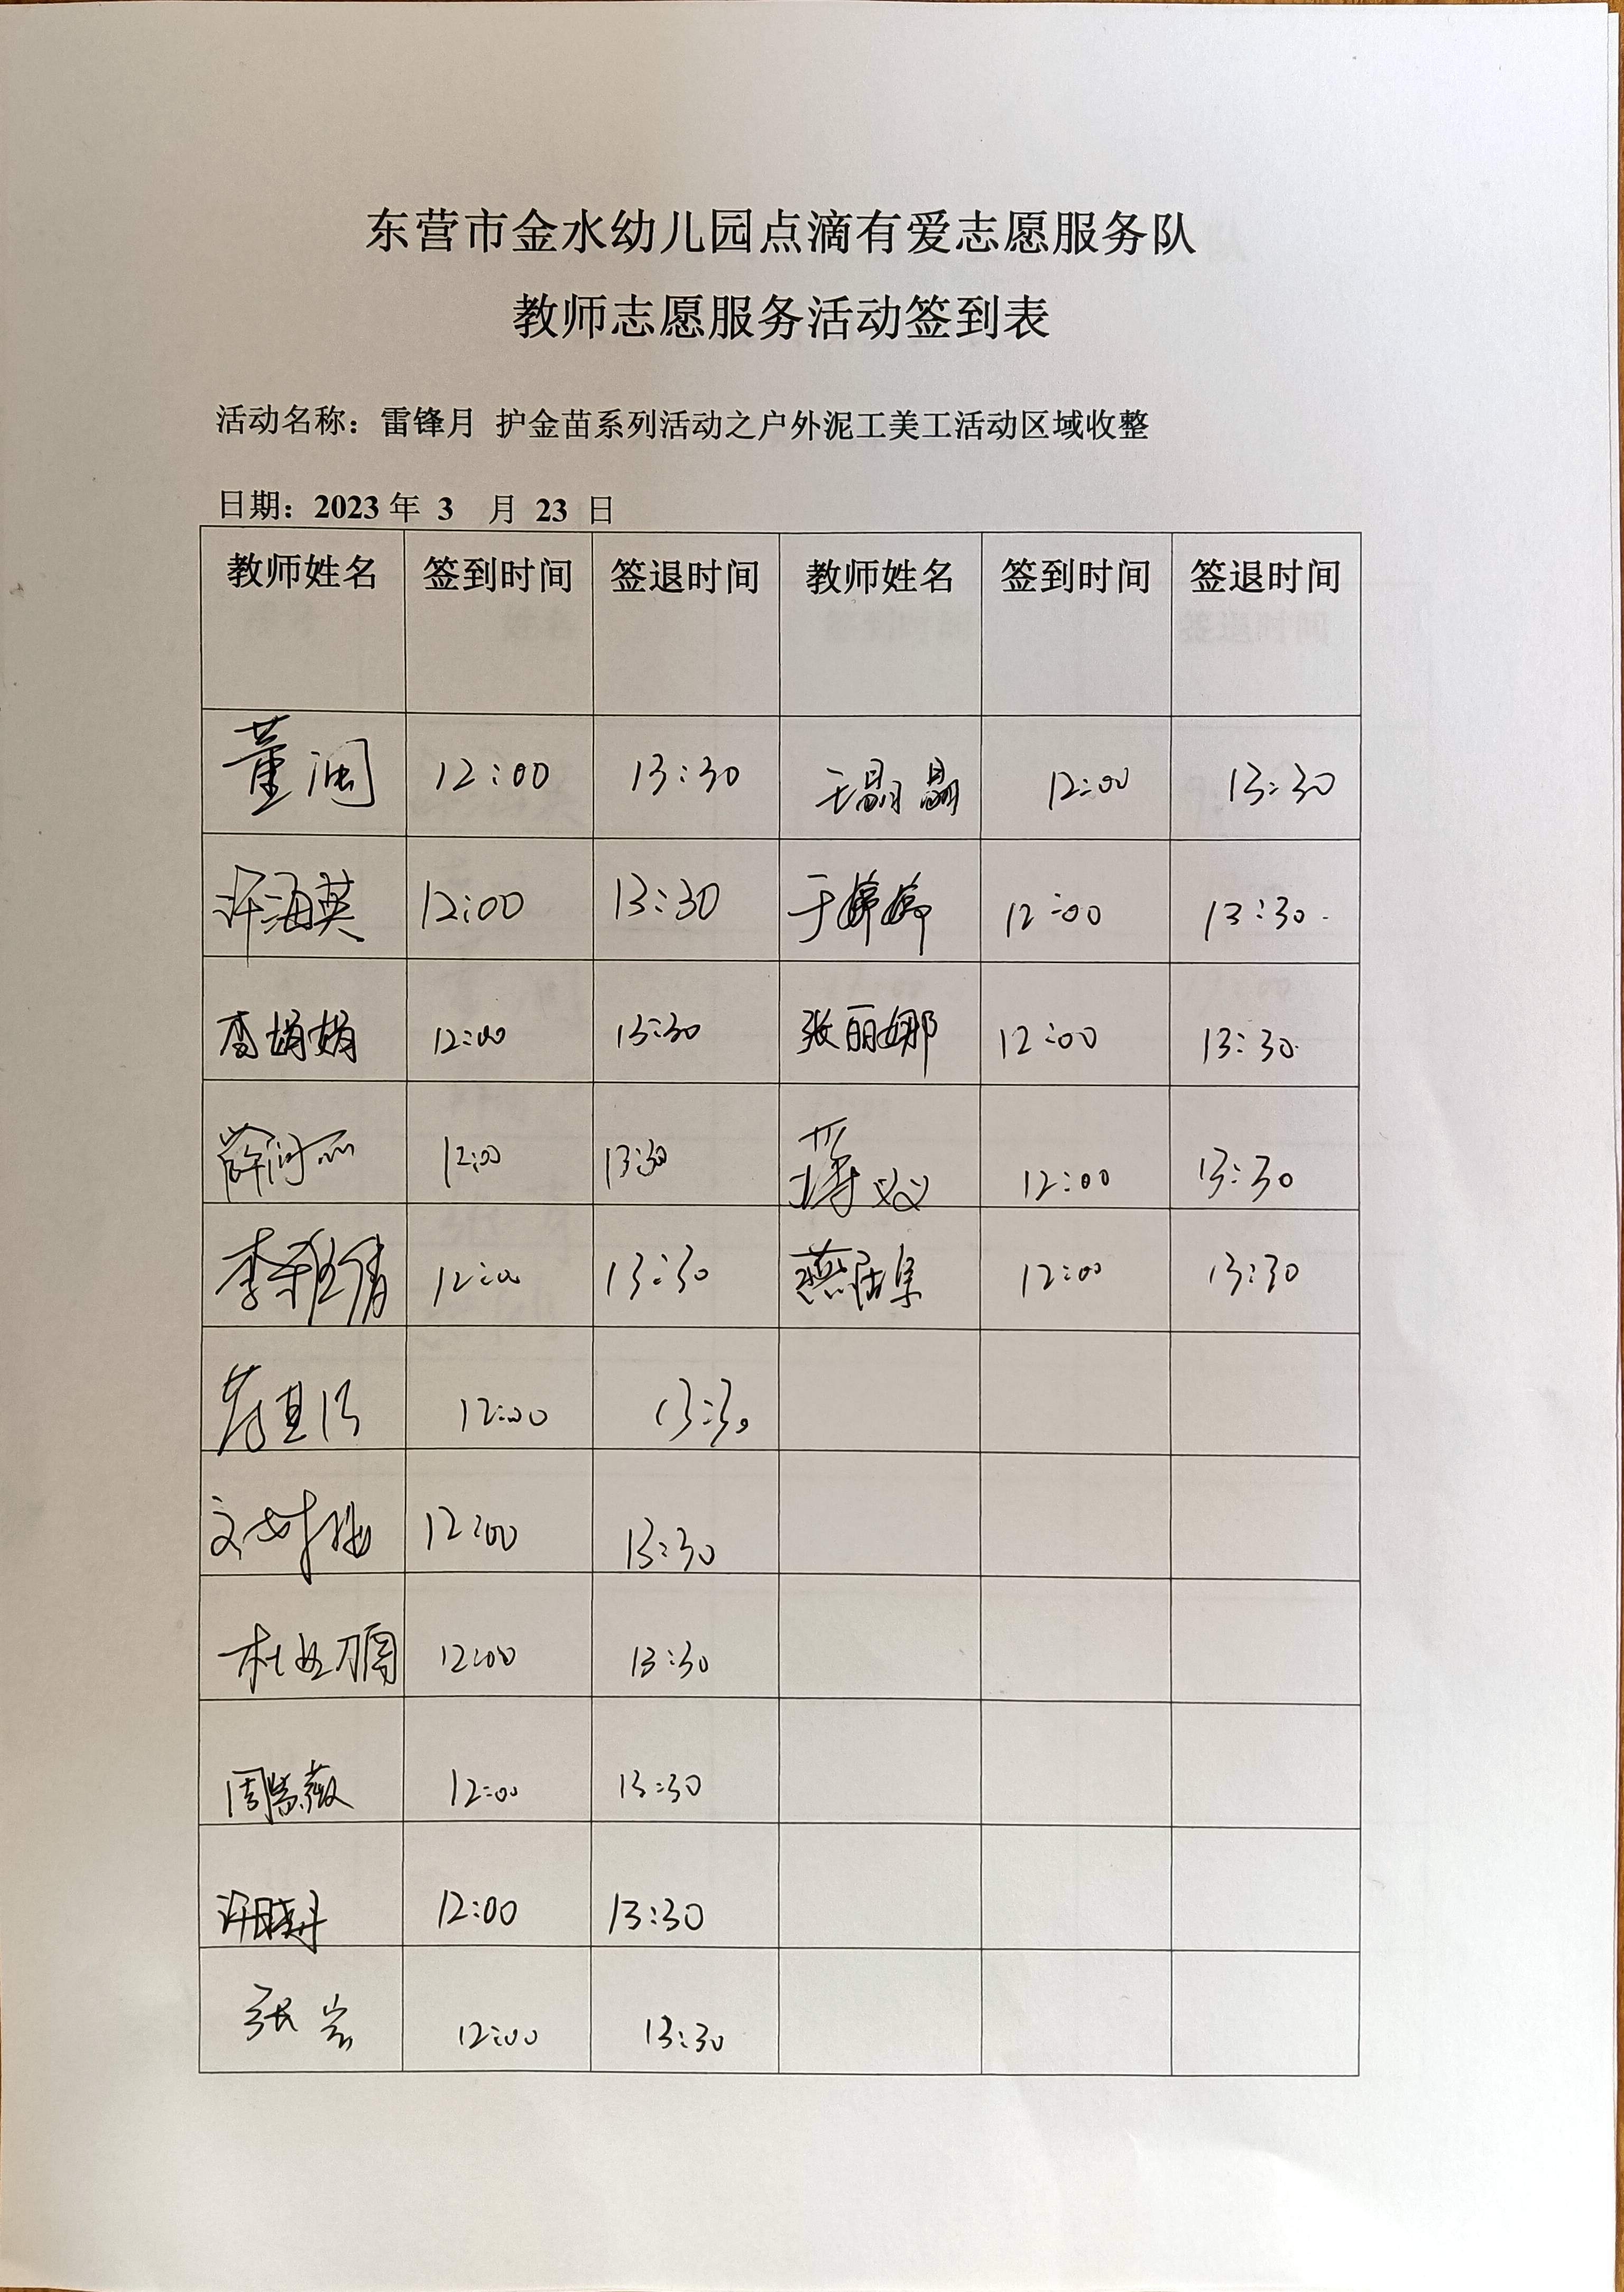 东营市金水幼儿园点滴有爱志愿服务队
教师志愿服务活动签到表
活动名称：雷锋月 护金苗系列活动之户外泥工美工活动区域收整
日期：2023 年 3 月 23 日
教师姓名 签到时间 签退时间 教师姓名 签到时间 签退时间
董 12:00 13:30 12:00 13:30
许海英 12:00 13:30 于婷婷 12:00 13:30
李娟娟 12:00 13:30 张丽娜 12:00 13:30
薛 12:00 13:30 蒋 12:00 13:30
李雅倩 12:00 13:30 燕 12:00 13:30
12:00 13:30
12:00 13:30
杜 12:00 13:30
周 薇 12:00 13:30
许晓丹 12:00 13:30
张岩 12:00 13:30